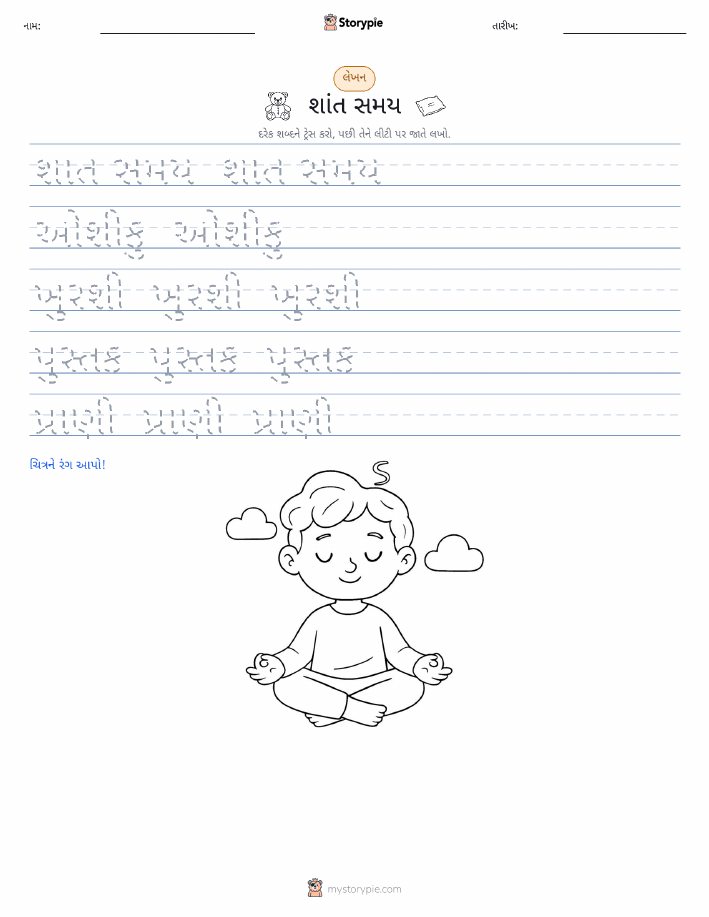 નામ:
Storypie
તારીખ:
લેખન
શાંત સમય
દરેક શબ્દને ટ્રેસ કરો, પછી તેને લીટી પર જાતે લખો.
શાત સમય શાત સમય
ઓશીકુ ઓશીકુ
ખુરશી ખુરશી ખુરશી
પુસ્તક પુસ્તક પુસ્તક
પ્રાણી પ્રાણી પ્રાણી
ચિત્રને રંગ આપો!
mystorypie.com